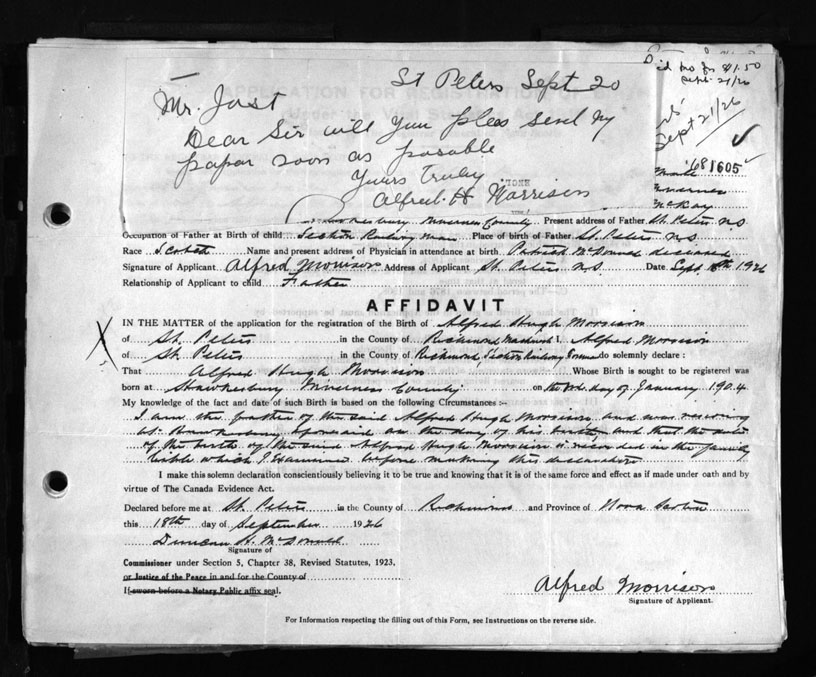 St Peters Sept 20
Mr. Jost
Dear Sir will you pleas send my
papar soon as posable
Yours Truly
Alfred. H Morrison
$1.50
Sept 21/26
Sept 21/26
681605
Male
Inverness
McKay
Inverness County Present address of Father St. Peters N S
Occupation of Father at Birth of child Section Railway Man Place of birth of Father St. Peters N S
Race Scotch Name and present address of Physician in attendance at birth Patrick McDonald deceased
Signature of Applicant Alfred Morrison Address of Applicant St. Peters N.S. Date Sept. 18th 1926
Relationship of Applicant to child Father
AFFIDAVIT
IN THE MATTER of the application for the registration of the Birth of Alfred Hugh Morrison
of St. Peters in the County of Richmond I, Alfred Morrison
of St. Peters in the County of Richmond, Section Railway do solemnly declare:
That Alfred Hugh Morrison Whose Birth is sought to be registered was
born at Hawkesbury Inverness County on the 3rd. day of January 1904.
My knowledge of the fact and date of such Birth is based on the following Circumstances :-
I am the father of the said Alfred Hugh Morrison and was residing
at Hawkesbury aforesaid on the day of his birth, and that the date
of the birth of the said Alfred Hugh Morrison is recorded in the family
bible which I examined before making this declaration
I make this solemn declaration conscientiously believing it to be true and knowing that it is of the same force and effect as if made under oath and by
virtue of The Canada Evidence Act.
Declared before me at St. Peters in the County of Richmond and Province of Nova Scotia
this 18th day of September 1926
Duncan H. McDonald
Signature of
Commissioner under Section 5, Chapter 38, Revised Statutes, 1923,
or Justice of the Peace in and for the County of
If sworn before a Notary Public affix seal.
Alfred Morrison
Signature of Applicant.
For Information respecting the filling out of this Form, see Instructions on the reverse side.